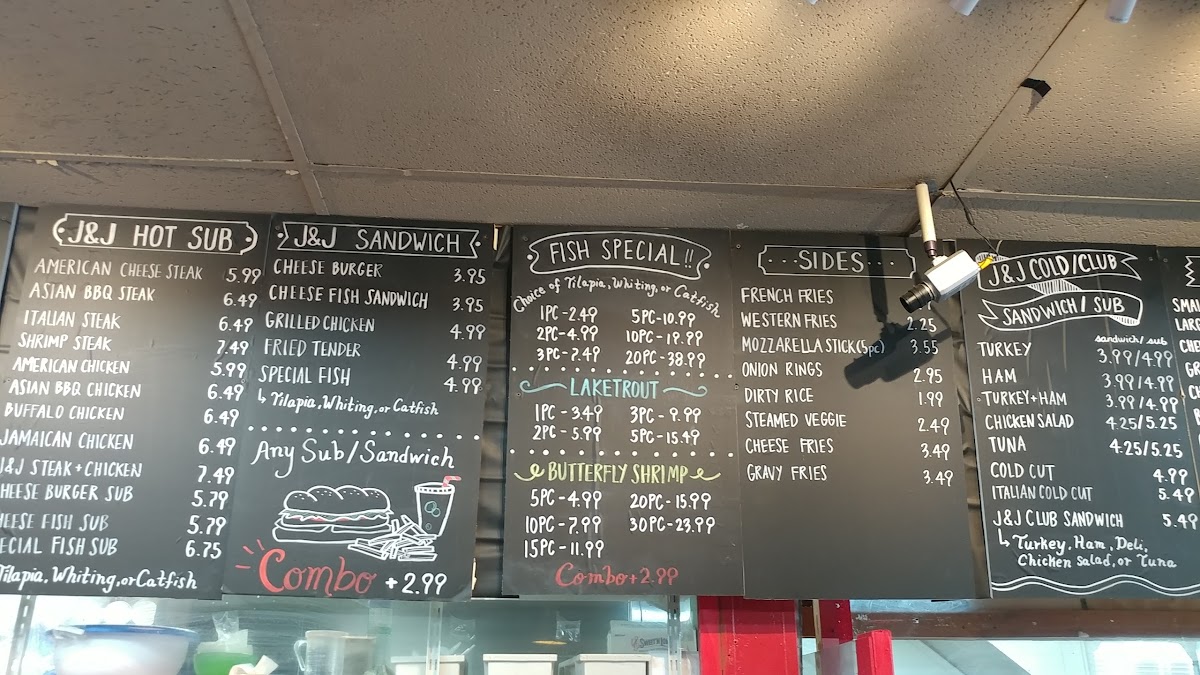 J&J HOT SUB
AMERICAN CHEESE STEAK 5.99
ASIAN BBQ STEAK 6.49
ITALIAN STEAK 6.49
SHRIMP STEAK 7.49
AMERICAN CHICKEN 5.99
ASIAN BBQ CHICKEN 6.49
BUFFALO CHICKEN 6.49
JAMAICAN CHICKEN 6.49
J&J STEAK+CHICKEN 7.49
CHEESE BURGER SUB 5.79
CHEESE FISH SUB 5.79
SPECIAL FISH SUB 6.75
Tilapia, Whiting, or Catfish
J&J SANDWICH
CHEESE BURGER 3.95
CHEESE FISH SANDWICH 3.95
GRILLED CHICKEN 4.99
FRIED TENDER 4.99
SPECIAL FISH 4.99
↳ Tilapia, Whiting, or Catfish
Any Sub/Sandwich
Combo + 2.99
FISH SPECIAL!!
Choice of Tilapia, Whiting, or Catfish
1PC - 2.49 5PC - 10.99
2PC - 4.99 10PC - 19.99
3PC - 7.49 20PC - 38.99
LAKETROUT
1PC - 3.49 3PC - 9.99
2PC - 5.99 5PC - 15.49
BUTTERFLY SHRIMP
5PC - 4.99 20PC - 15.99
10PC - 7.99 30PC - 23.99
15PC - 11.99
Combo + 2.99
SIDES
FRENCH FRIES
WESTERN FRIES 2.25
MOZZARELLA STICK (5pc) 3.55
ONION RINGS 2.95
DIRTY RICE 1.99
STEAMED VEGGIE 2.49
CHEESE FRIES 3.49
GRAVY FRIES 3.49
J&J COLD/CLUB
SANDWICH/SUB
sandwich/sub
TURKEY 3.99/4.99
HAM 3.99/4.99
TURKEY+HAM 3.99/4.99
CHICKEN SALAD 4.25/5.25
TUNA 4.25/5.25
COLD CUT 4.99
ITALIAN COLD CUT 5.49
J&J CLUB SANDWICH 5.49
↳ Turkey, Ham, Deli,
Chicken Salad, or Tuna